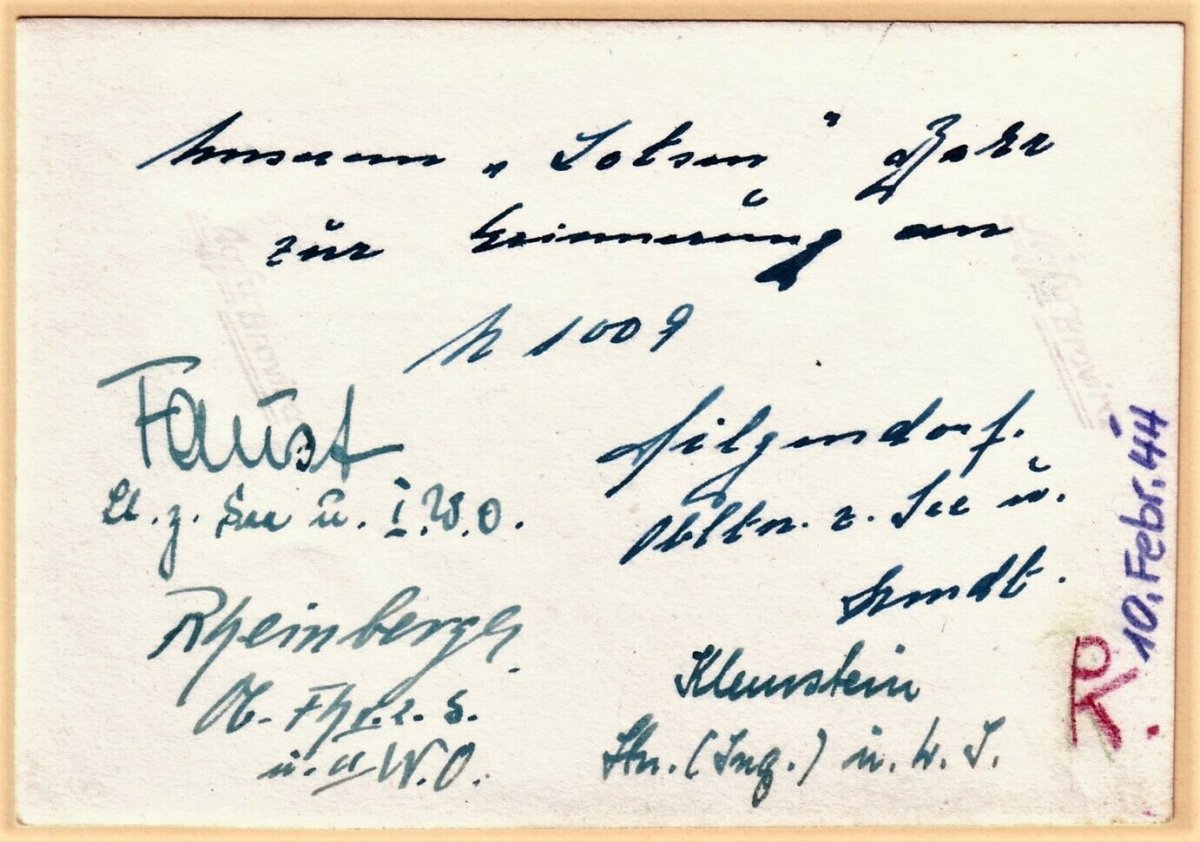 Unserem „Lotsen" Bohr
zur Erinnerung an
U 1009
Faust
Lt. z. See u. I. W.O.
Hilgendorf.
Obltn. z. See u.
Kmdt.
Rheinberger
Ob. Fhr. z. S.
u. II W.O.
Klemstein
Ltn. (Ing.) u. L. I.
10. Febr. 44
R.